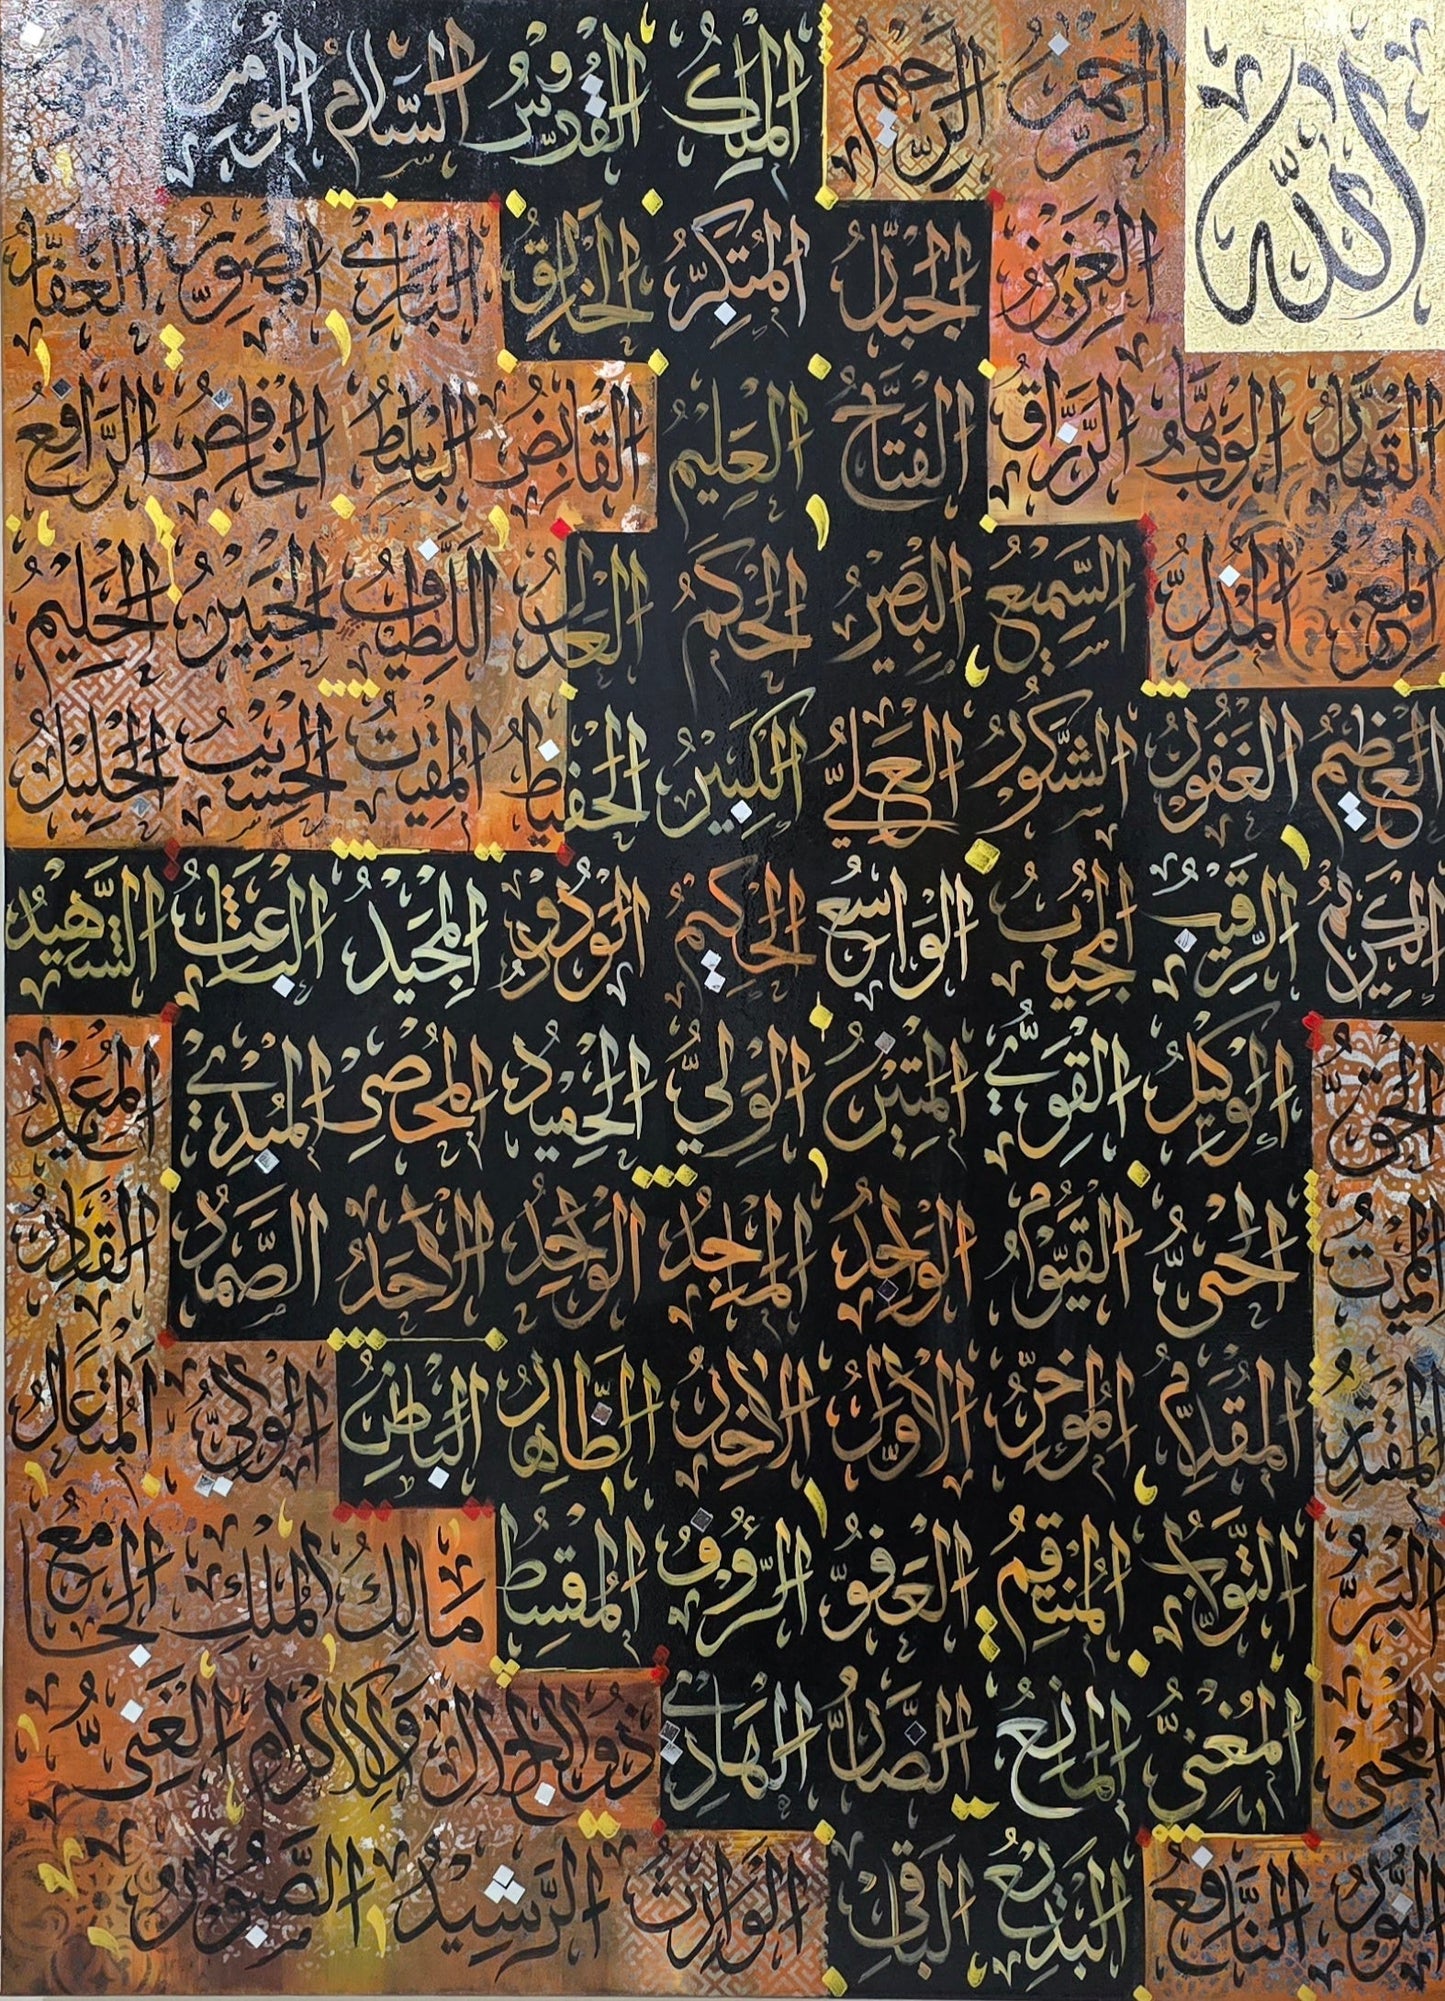 الله الرَّحْمٰنُ الرَّحِيْمُ الْمَلِكُ الْقُدُّوْسُ السَّلَامُ الْمُؤْمِنُ
الْعَزِيْزُ الْجَبَّارُ الْمُتَكَبِّرُ الْخَالِقُ الْبَارِئُ الْمُصَوِّرُ الْغَفَّارُ
الْقَهَّارُ الْوَهَّابُ الرَّزَّاقُ الْفَتَّاحُ الْعَلِيْمُ الْقَابِضُ الْبَاسِطُ الْخَافِضُ الرَّافِعُ
الْمُعِزُّ الْمُذِلُّ السَّمِيْعُ الْبَصِيْرُ الْحَكَمُ الْعَدْلُ اللَّطِيْفُ الْخَبِيْرُ الْحَلِيْمُ
الْعَظِيْمُ الْغَفُوْرُ الشَّكُوْرُ الْعَلِيُّ الْكَبِيْرُ الْحَفِيْظُ الْمُقِيْتُ الْحَسِيْبُ الْجَلِيْلُ
الْكَرِيْمُ الرَّقِيْبُ الْمُجِيْبُ الْوَاسِعُ الْحَكِيْمُ الْوَدُوْدُ الْمَجِيْدُ الْبَاعِثُ الشَّهِيْدُ
الْحَقُّ الْوَكِيْلُ الْقَوِيُّ الْمَتِيْنُ الْوَلِيُّ الْحَمِيْدُ الْمُحْصِيْ الْمُبْدِئُ الْمُعِيْدُ
الْمُمِيْتُ الْحَيُّ الْقَيُّوْمُ الْوَاجِدُ الْمَاجِدُ الْوَاحِدُ الْأَحَدُ الصَّمَدُ الْقَادِرُ
الْمُقْتَدِرُ الْمُقَدِّمُ الْمُؤَخِّرُ الْأَوَّلُ الْآخِرُ الظَّاهِرُ الْبَاطِنُ الْوَالِيْ الْمُتَعَالُ
الْبَرُّ التَّوَّابُ الْمُنْتَقِمُ الْعَفُوُّ الرَّؤُوْفُ الْمُقْسِطُ مَالِكُ الْمُلْكِ الْجَامِعُ
الْمُحْيِيْ الْمُغْنِيْ الْمَانِعُ الضَّارُّ الْهَادِيْ ذُو الْجَلَالِ وَالْإِكْرَامِ الْغَنِيُّ
النُّوْرُ النَّافِعُ الْبَدِيْعُ الْبَاقِيْ الْوَارِثُ الرَّشِيْدُ الصَّبُوْرُ